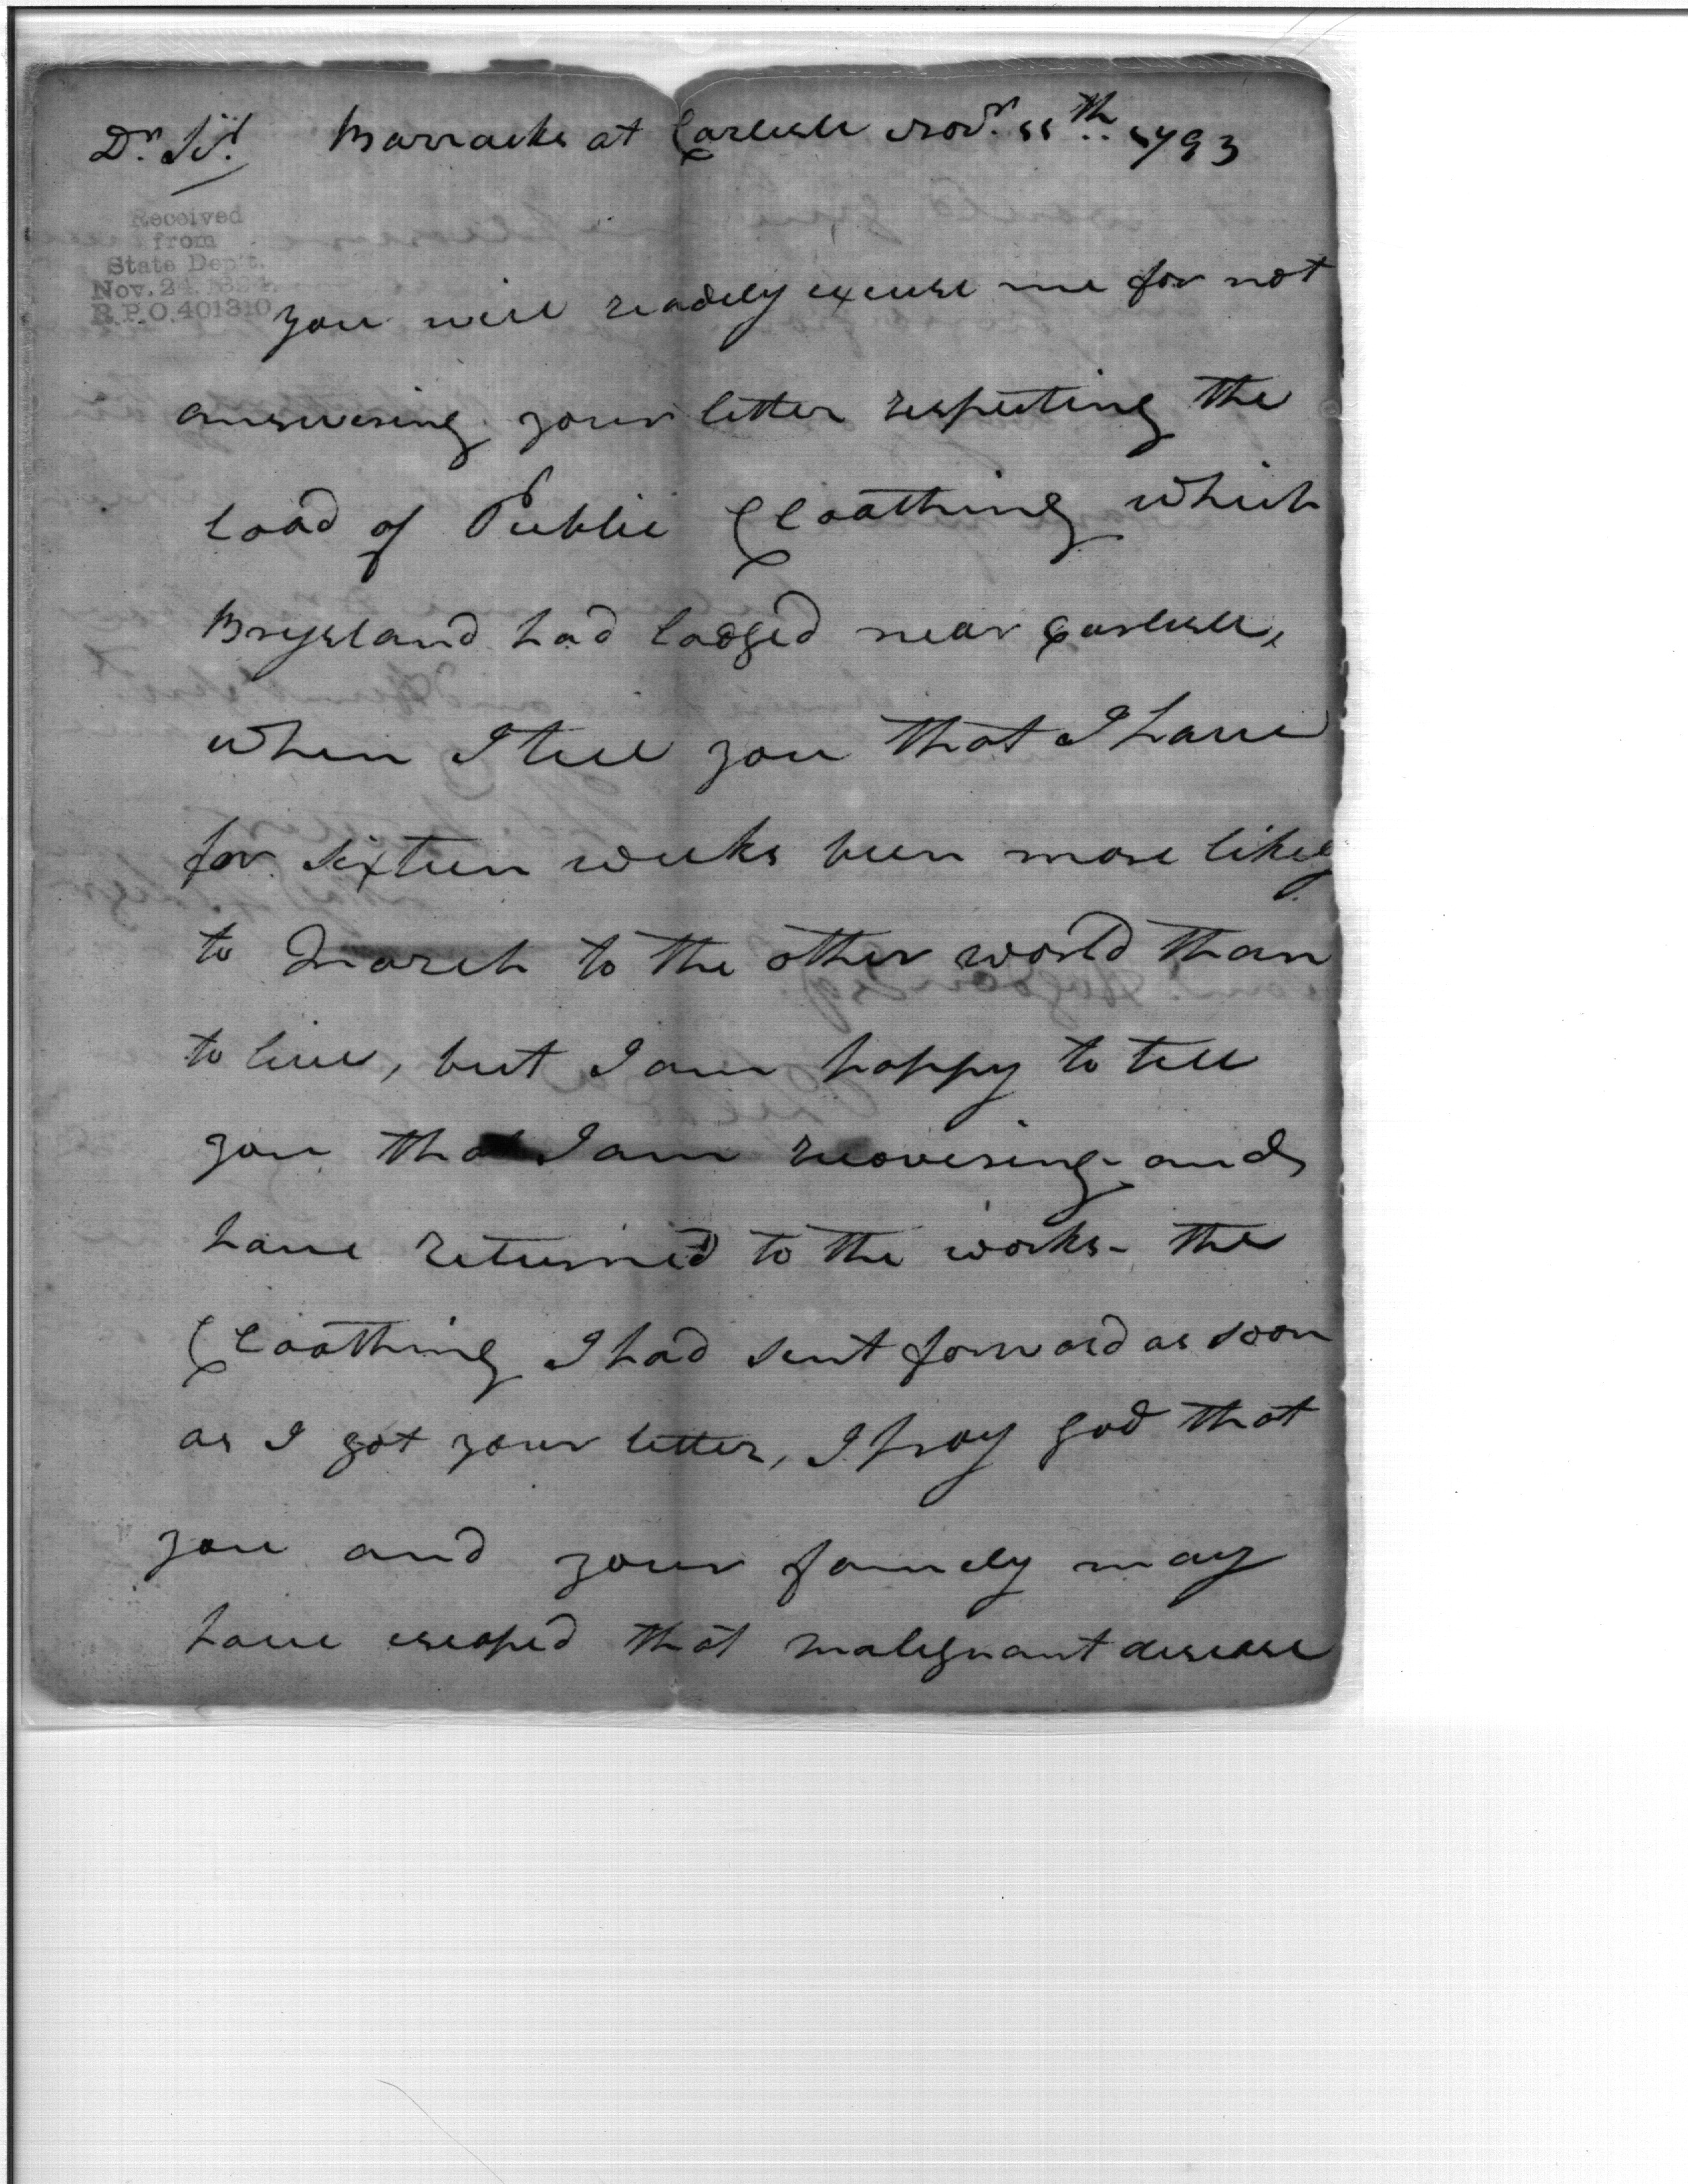 Dr. Sir. Barracks at Carlisle Novr. 11th.. 1793
Received
from
State Dep't.
Nov. 24, 1894
R.P.O. 401310
you will readely excuse me for not
answering your letter respecting the
load of Public Cloathing which
Brysland had lodged near Carlisle,
when I tell you that I have
for sixteen weeks been more likely
to march to the other world than
to live, but I am happy to tell
you that I am recovering and
have returned to the works - the
Cloathing I had sent forward as soon
as I got your letter, I pray god that
you and your famely may
have escaped that malegnant desease